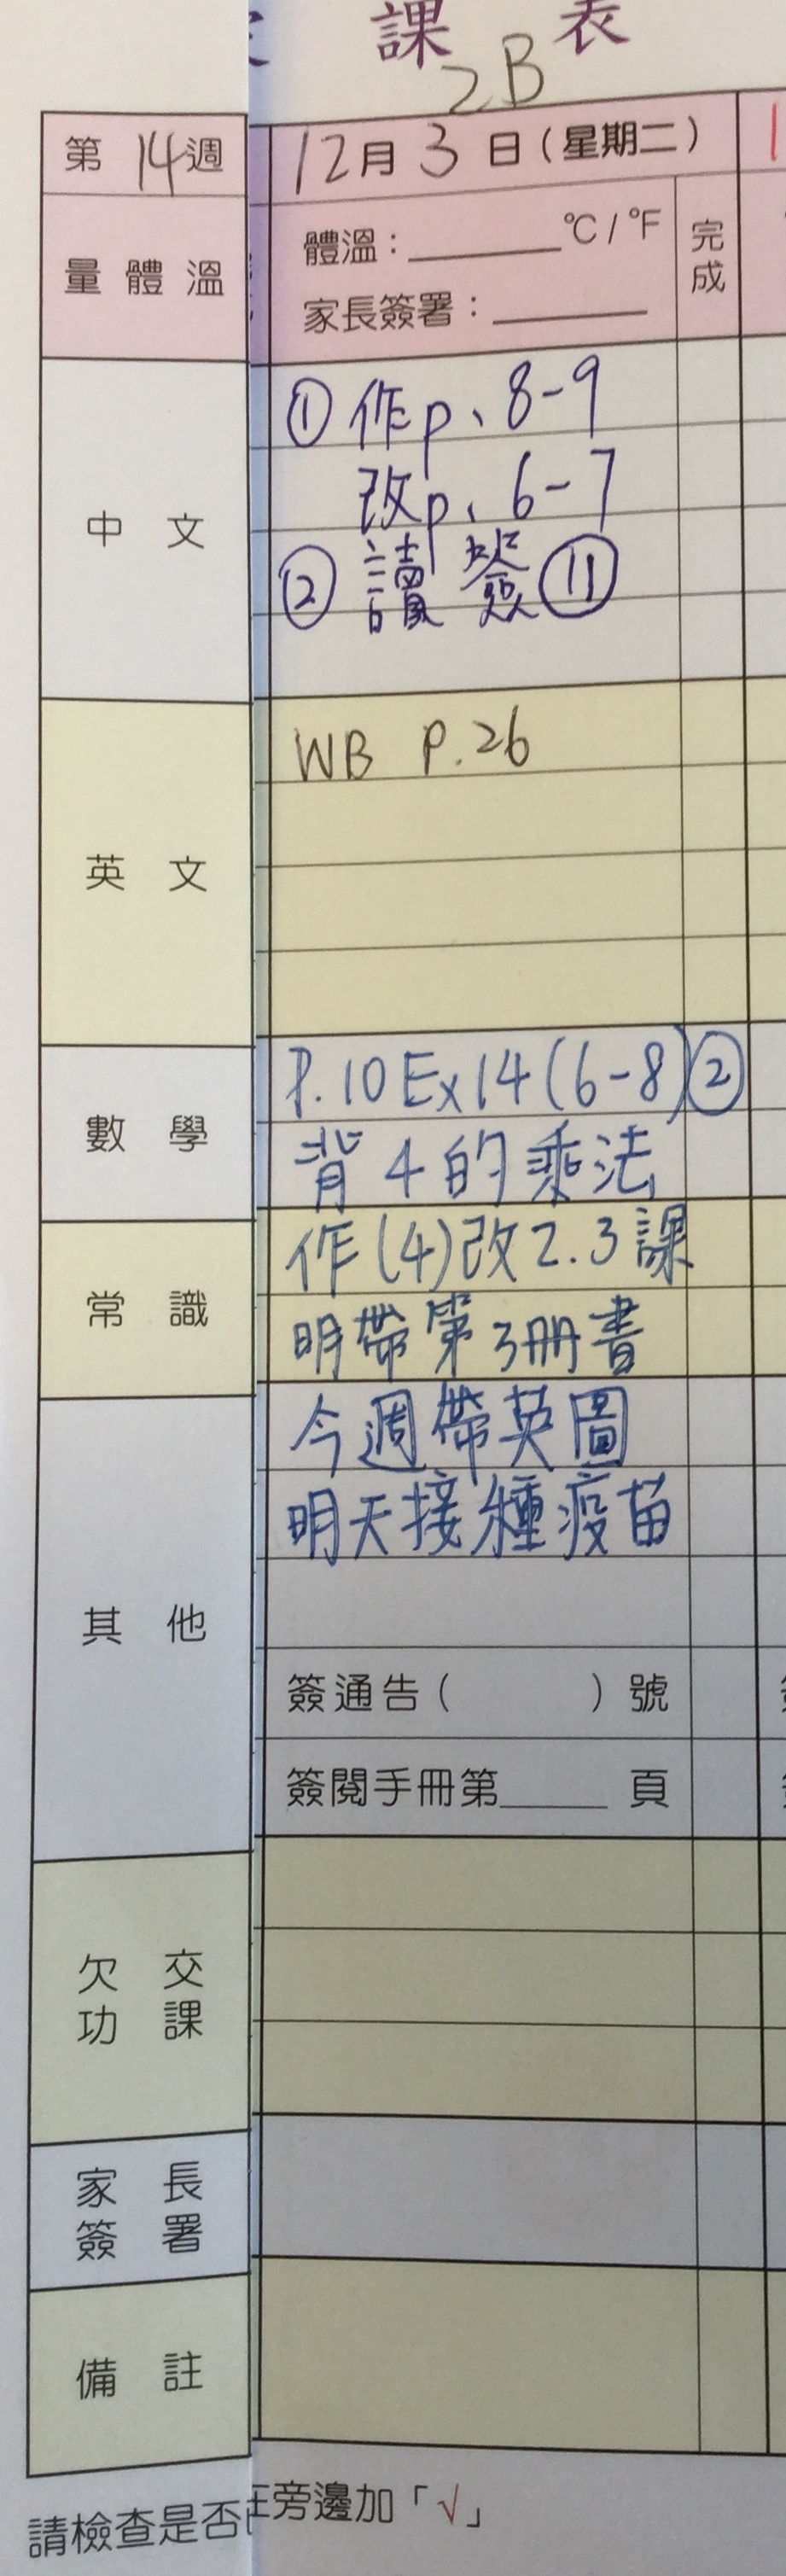 課表
2B
第14週
12月3日(星期二)
量體溫
體溫：______°C/°F
家長簽署：______
完成
中文
①作p、8-9
改p、6-7
②讀簽⑪
英文
WB P.26
數學
P.10 Ex14(6-8)②
背4的乘法
常識
作(4)改2.3課
明帶第3冊書
其他
今週帶英圖
明天接種疫苗
簽通告( )號
簽閱手冊第____頁
欠交功課
家長簽署
備註
請檢查是否
旁邊加「√」